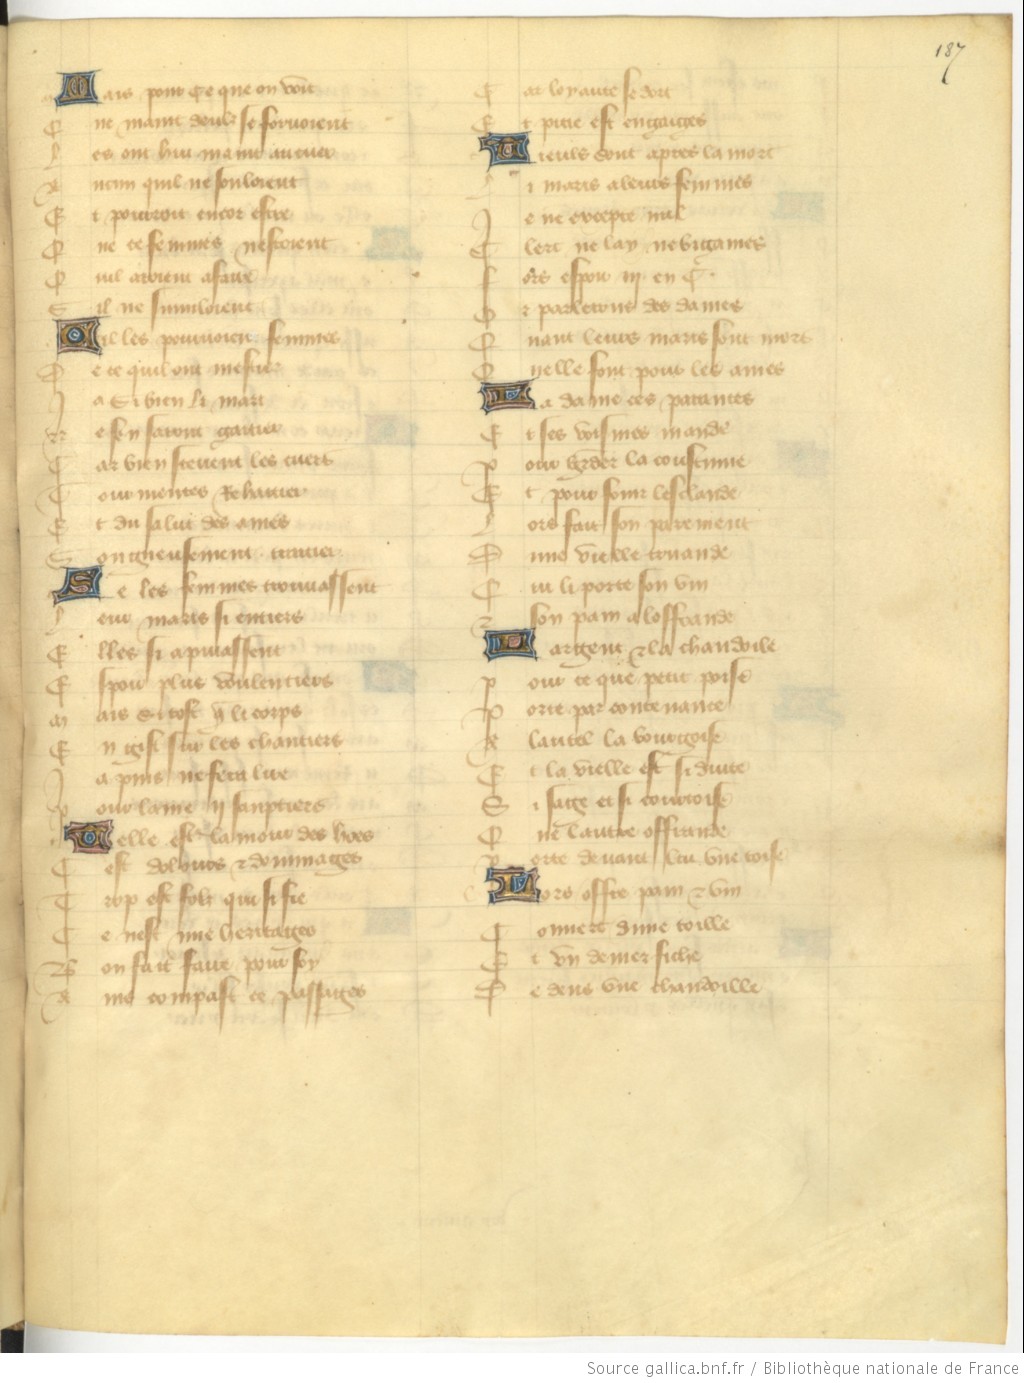 187
Mais pour ce que on voit
Que maint deulz se forvoient
Les ont huy maint
Aucun quil ne souloient
Et pourroit encor estre
Que ce femmes nestoient
Quil aroient a faire
Sil ne simuloient
Cil les pourvoient femmes
De ce quil ont mestier
Ja si bien li mari
Nes en saront gaitier
Car bien scevent les cuers
Tout mentes Rehaitier
Et du salut des ames
Songneusement traitier
Se les femmes trouvassent
Leur maris si entiers
Elles si apuiassent
Espoir plus voulentiers
Mais si tost q̄ li corps
En gist sur les chantiers
Ja puis ne sera lire
Pour lame ii sauptiers
Telle est lamour des hoēs
Cest doleurs ⁊ dommages
Trop est folz qui si fie
Ce nest mie heritages
Bon fait faire pour soy
Ains com past ce passages
Car loyaute se dort
Et pitie est engaiges
Tieuls sont apres la mort
Li maris a leurs femmes
Je ne excepte nul
Clerc ne lay ne bigames
Fors espoir iii en C
Or parlerons des dames
Quant leurs maris sont mort
Quelle font pour les ames
La dame ces parantes
Et ses voisines mande
Pour garder la coustume
Et pour fouir lesclande
Lors fait son parement
Dune vielle truande
Qui li porte son vin
⁊ son pain a loffrande
Largent ⁊ la chandoile
Pour ce que petit poise
Porte par contenance
A lautel la bourgoise
Et la vielle est si duite
Si sage et si courtoise
Que lautre offrande
Porte devant leu une toise
Lors offre pain ⁊ vin
Couvert dune toille
Et un denier fiche
Dedens une chandoille
Source gallica.bnf.fr / Bibliothèque nationale de France